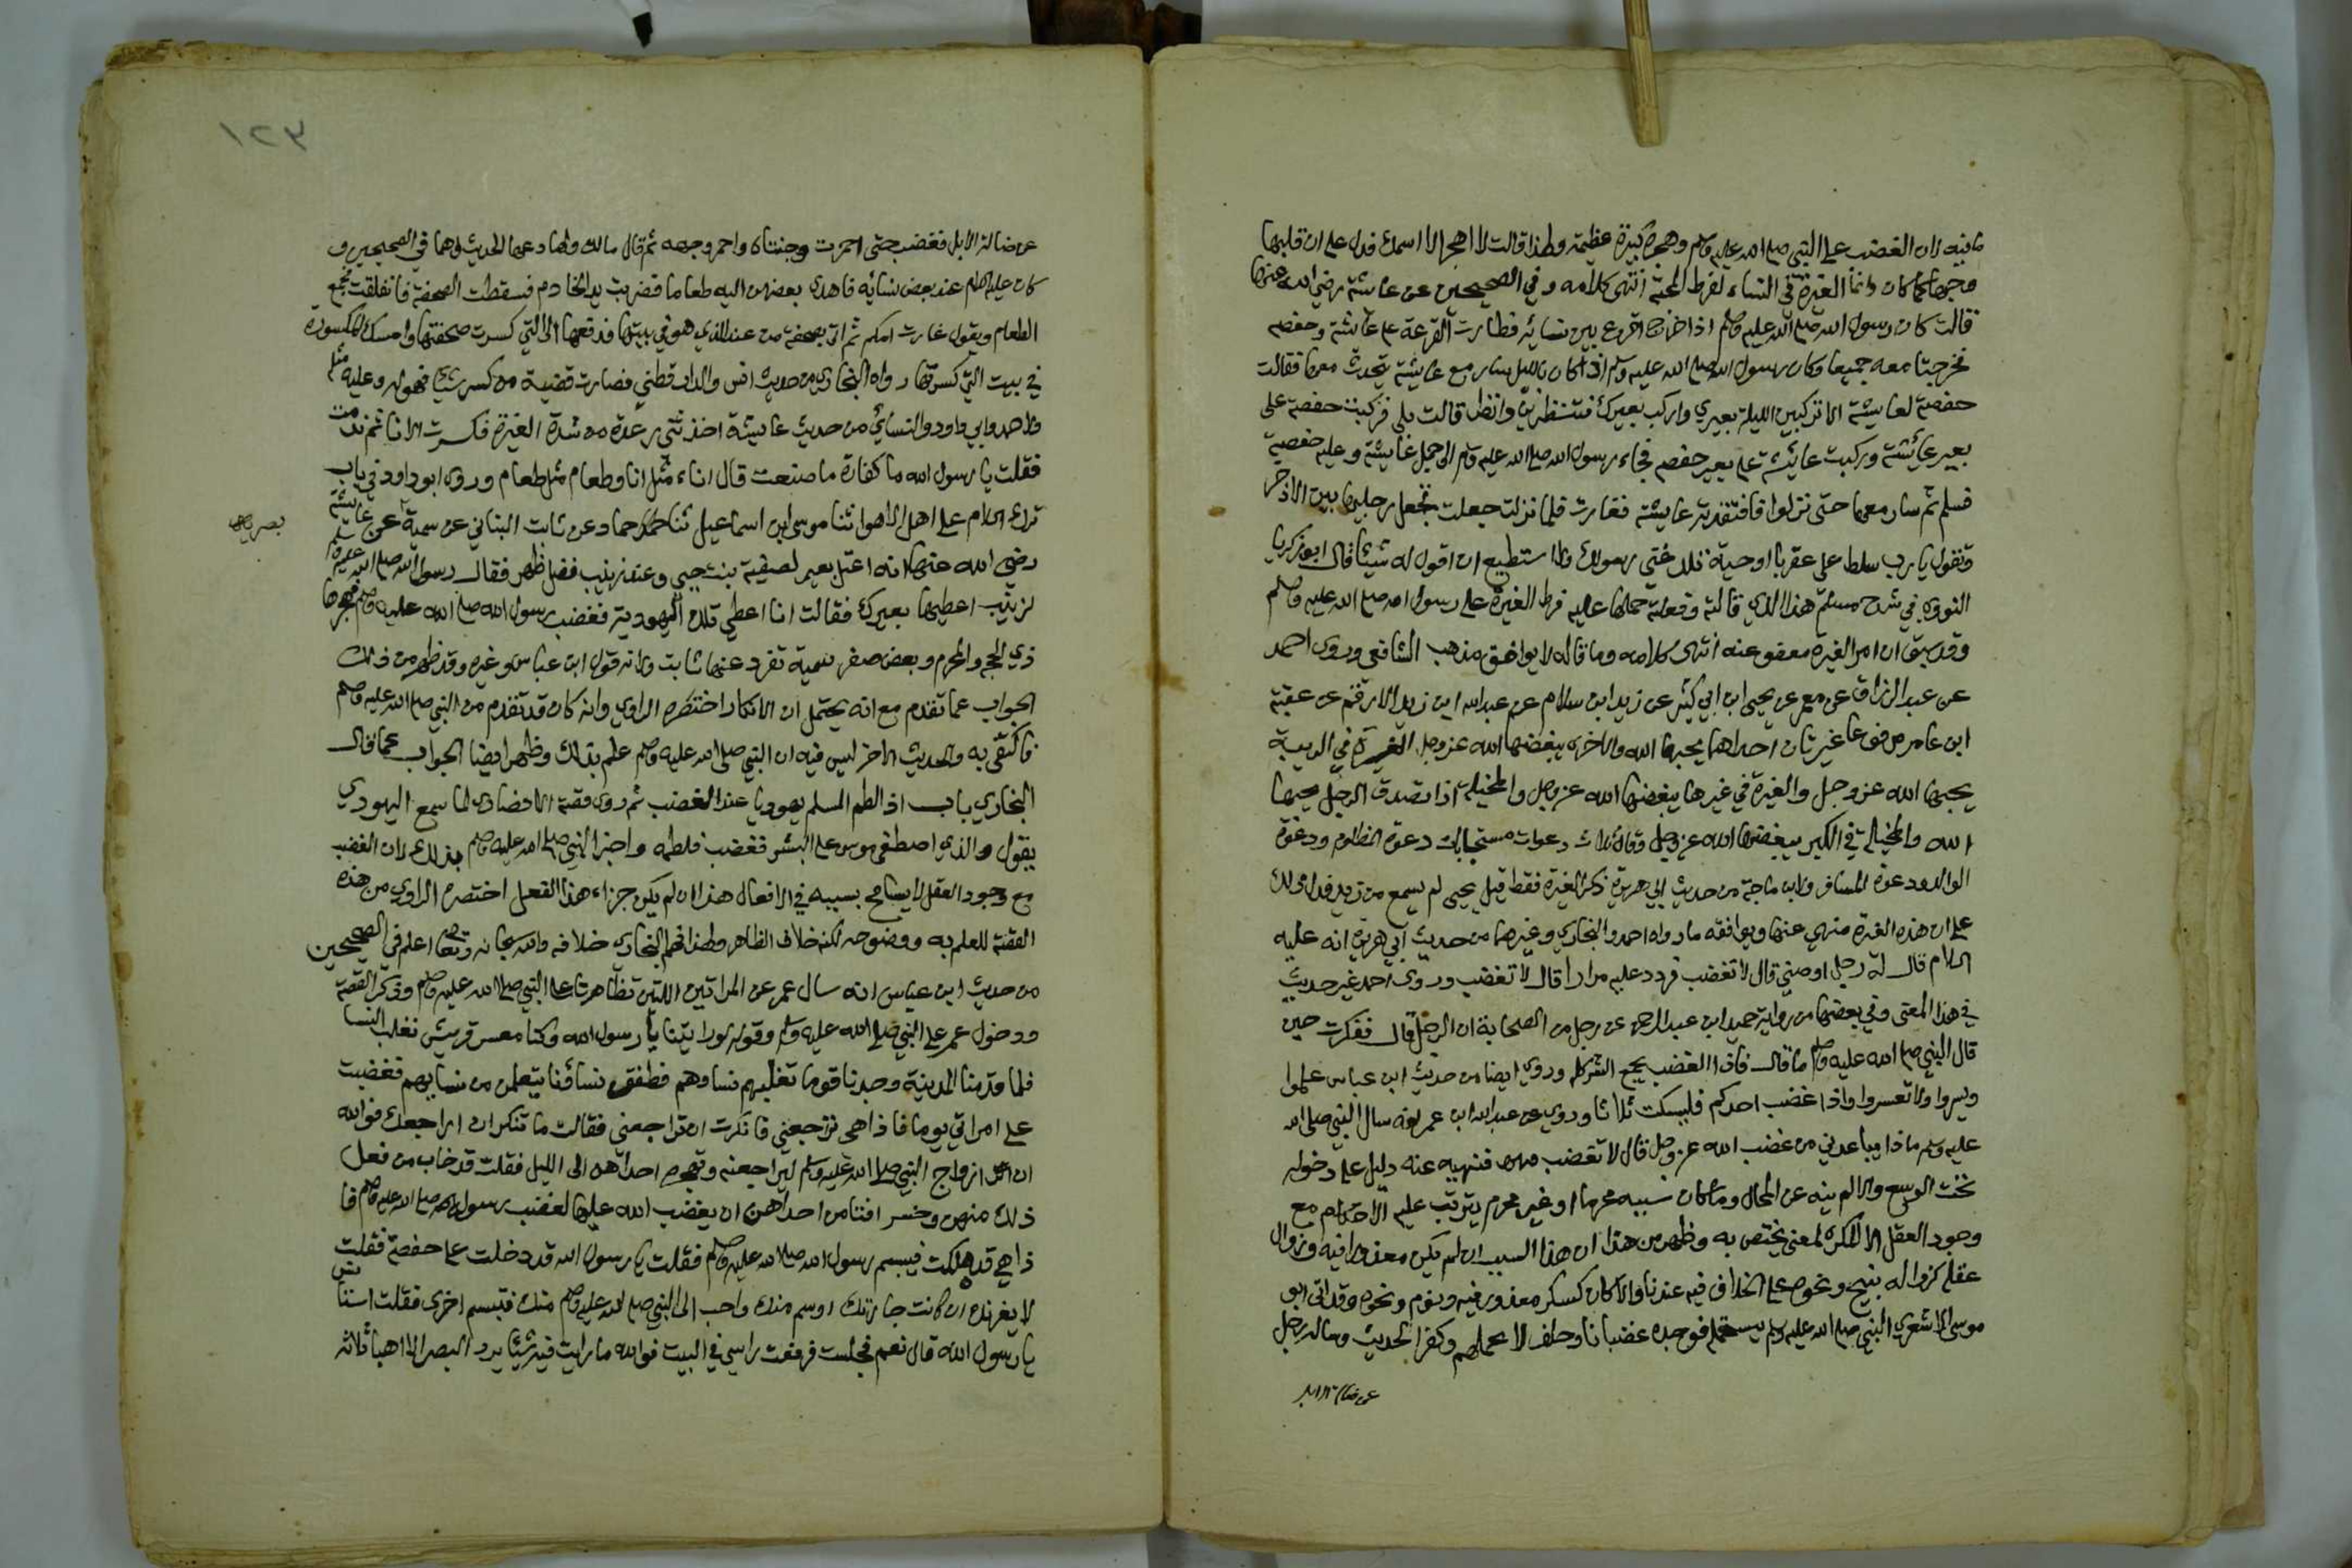 ما فيه لان الغضب على النبي صلى الله عليه وسلم وهجره كبيرة عظيمة ولهذا قالت لا اهجر الا اسمك فدل على ان قلبها
وحبها كما كان وانما الغيرة في النساء لفرط المحبة انتهى كلامه وفي الصحيحين عن عائشة رضي الله عنها
قالت كان رسول الله صلى الله عليه وسلم اذا خرج اقرع بين نسائه فطارت القرعة على عائشة وحفصه
فخرجتا معه جميعا وكان رسول الله صلى الله عليه وسلم اذا كان بالليل سار مع عايشة يتحدث معها فقالت
حفصة لعايشة الا تركبين الليلة بعيري واركب بعيرك فتنظرين وانظر قالت بلى فركبت حفصة على
بعير عائشة وركبت عائشة على بعير حفصه فجاء رسول الله صلى الله عليه وسلم الى جمل عايشة وعليه حفصة
فسلم ثم سار معها حتى نزلوا فافتقدته عايشه فغارت فلما نزلت جعلت تجعل رجليها بين الاذخر
وتقول يا رب سلط علي عقربا او حية تلدغني رسولك ولا استطيع ان اقول له شيئا قال ابو زكريا
النووي في شرح مسلم هذا الذي قالته وفعلته حملها عليه فرط الغيرة على رسول الله صلى الله عليه وسلم
وقد سبق ان امر الغيرة معفو عنه انتهى كلامه وما قاله لا يوافق مذهب الشافعي وروى احمد
عن عبد الرزاق عن معمر عن يحيى ابن ابي كثير عن زيد ابن سلام عن عبد الله ابن زيد الازرق عن عقبة
ابن عامر مرفوعا غيرتان احداهما يحبها الله والاخرى يبغضها الله عز وجل الغيرة في الريبة
يحبها الله عز وجل والغيرة في غيرها يبغضها الله عز وجل والمخيلة اذا تصدق الرجل يحبها
الله والمخيلة في الكبر يبغضها الله عز وجل وقال ثلاث دعوات مستجابات دعوة المظلوم ودعوة
الوالد ودعوة المسافر ولابن ماجة من حديث ابي هريرة ذكر الغيرة فقط قيل يحيى لم يسمع من زيد فدل ذلك
على ان هذه الغيرة منهي عنها ويوافقه ما رواه احمد والبخاري وغيرهما من حديث ابي هريرة انه عليه
السلام قال له رجل اوصني قال لا تغضب فردد عليه مرارا قال لا تغضب وروى احمد غير حديث
في هذا المعنى وفي بعضها من رواية حميد ابن عبد الرحمن عن رجل من الصحابة ان الرجل قال ففكرت حين
قال النبي صلى الله عليه وسلم ما قال فاذا الغضب يجمع الشر كله وروي ايضا من حديث ابن عباس علموا
ويسروا ولا تعسروا واذا غضب احدكم فليسكت ثلاثا وروي عن عبد الله ابن عمر انه سال النبي صلى الله
عليه وسلم ماذا يباعدني من غضب الله عز وجل قال لا تغضب فنهيه عنه دليل على دخوله
تحت الوسع والا لم ينه عن المحال وما كان سببه محرما او غير محرم يترتب عليه الاحكام مع
وجود العقل الا المكره لمعنى يختص به وظهر من هذا ان هذا السبب ان لم يكن معذورا فيه وزوال
عقله كزواله ببنج ونحوه على الخلاف فيه عندنا والا كان كسكر معذور فيه ونوم ونحوه وقد اتى ابو
موسى الاشعري النبي صلى الله عليه وسلم يستحمله فوجده غضبانا وحلف لا يحملهم وكفر الحديث وساله رجل
عن ضالة الابل
١٢٣
عن ضالة الابل فغضب حتى احمرت وجنتاه واحمر وجهه ثم قال مالك ولها دعها الحديث وهما في الصحيحين و
كان عليه السلام عند بعض نسائه فاهدى بعضهن اليه طعاما فضربت يد الخادم فسقطت الصحفة فانفلقت فجمع
الطعام ويقول غارت امكم ثم اتى بصحفة من عند الذي هو في بيتها فدفعها الى التي كسرت صحفتها وامسك المكسورة
في بيت التي كسرتها رواه البخاري من حديث انس والدارقطني فصارت قضية من كسر شيئا فهو له وعليه مثله
ولاحمد وابي داود والنسائي من حديث عايشة اخذتني رعدة من شدة الغيرة فكسرت الانا ثم ندمت
فقلت يا رسول الله ما كفارة ما صنعت قال اناء مثل انا وطعام مثل طعام وروى ابو داود في باب
ترك السلام على اهل الاهوا ثنا موسى ابن اسماعيل ثنا حماد عن ثابت البناني عن سمية عن عائشة
رضي الله عنها انه اعتل بعير لصفية بنت حيي وعند زينب فضل ظهر فقال رسول الله صلى الله عليه وسلم
لزينب اعطيها بعيرك فقالت انا اعطي تلك اليهودية فغضب رسول الله صلى الله عليه وسلم فهجرها
ذي الحجة والمحرم وبعض صفر سمية تفرد عنها ثابت ولانه قول ابن عباس وغيره وقد ظهر من ذلك
الجواب عما تقدم مع انه يحتمل ان الانكار اختصره الراوي وانه كان قد تقدم من النبي صلى الله عليه وسلم
فاكتفى به والحديث الاخر ليس فيه ان النبي صلى الله عليه وسلم علم بذلك وظهر ايضا الجواب عما قال
البخاري باب اذا لطم المسلم يهوديا عند الغضب ثم روى قصة الانصاري لما سمع اليهودي
يقول والذي اصطفى موسى على البشر فغضب فلطمه واخبر النبي صلى الله عليه وسلم بذلك لان الغضب
مع وجود العقل لا يسامح بسببه في الافعال هذا ان لم يكن جزاء هذا الفعل اختصره الراوي من هذه
القصة للعلم به ووضوحه لكنه خلاف الظاهر ولهذا فهم البخاري خلافه والله سبحانه وتعالى اعلم في الصحيحين
من حديث ابن عباس انه سال عمر عن المراتين اللتين تظاهرتا على النبي صلى الله عليه وسلم وذكر القصة
ودخول عمر على النبي صلى الله عليه وسلم وقوله لو رايتنا يا رسول الله وكنا معسر قريش نغلب النسا
فلما قدمنا المدينة وجدنا قوما تغلبهم نساوهم فطفق نساؤنا يتعلمن من نسايهم فغضبت
على امراتي يوما فاذا هي تراجعني فانكرت ان تراجعني فقالت ما تنكر ان اراجعك فوالله
ان ازواج النبي صلى الله عليه وسلم ليراجعنه وتهجره احداهن الى الليل فقلت قد خاب من فعل
ذلك منهن وخسر افتامن احداهن ان يغضب الله عليها لغضب رسول الله صلى الله عليه وسلم فا
ذا هي قد هلكت فتبسم رسول الله صلى الله عليه وسلم فقلت يا رسول الله قد دخلت على حفصة فقلت
لا يغرنك ان كانت جارتك اوسم منك واحب الى النبي صلى الله عليه وسلم منك فتبسم اخرى فقلت استانس
يا رسول الله قال نعم فجلست فرفعت راسي في البيت فوالله ما رايت فيه شيئا يرد البصر الا اهبا ثلاثه